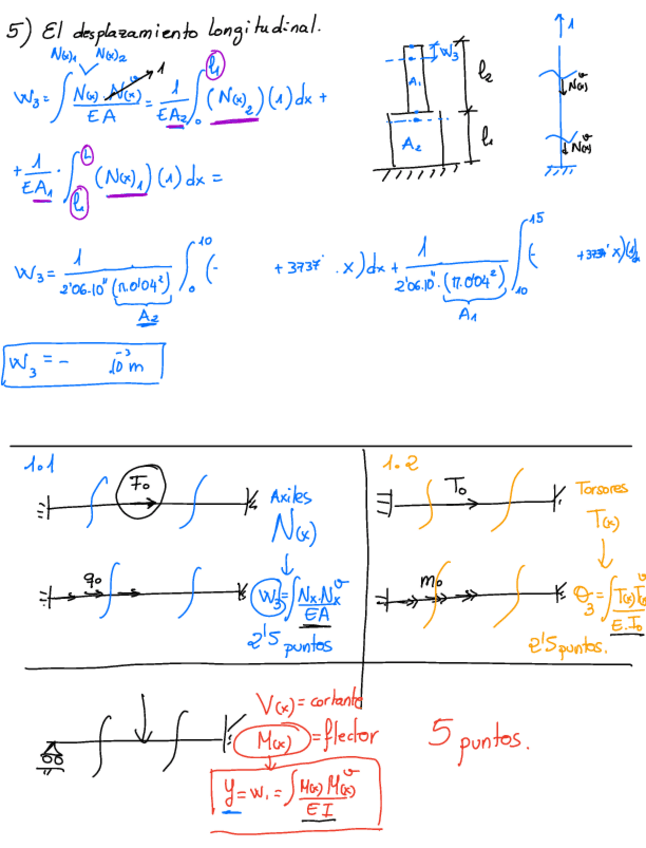 5) El desplazamiento longitudinal.
N(x)₁ N(x)₂
W₃ = ∫ N(x)·N(x)ᵛ / EA = 1/EA₂ ∫₀^l₁ (N(x)₂)(1)dx +
1
+ 1/EA₁ · ∫_l₁^L (N(x)₁)(1)dx =
W₃
A₁
A₂
l₂
l₁
1
N(x)ᵛ
N(x)ᵛ
W₃ = 1/2'06·10¹¹(π·0'04²) ∫₀^10 (- +3737' · x)dx + 1/2'06·10¹¹·(π·0'04²) ∫₁₀^15 (- x)
A₂
A₁
W₃ = - 10⁻³ m
1.1
F₀
Axiles
N(x)
q₀
W₃ = ∫ Nx·Nxᵛ / EA
2'5 puntos
1.2
T₀
Torsores
T(x)
m₀
θ₃ = ∫ T(x) / E·I₀
2'5 puntos.
V(x) = cortante
M(x) = flector
y = W₁ = ∫ M(x) M(x)ᵛ / EI
5 puntos.